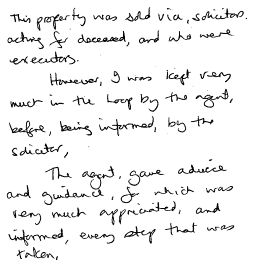 This property was sold via, solicitors.
acting for deceased, and who were
executors.
However, I was kept very
much in the loop by the agent,
before, being informed, by the
solicitor,
The agent, gave advice
and guidance, for which was
very much appriciated, and
informed, every step that was
taken,